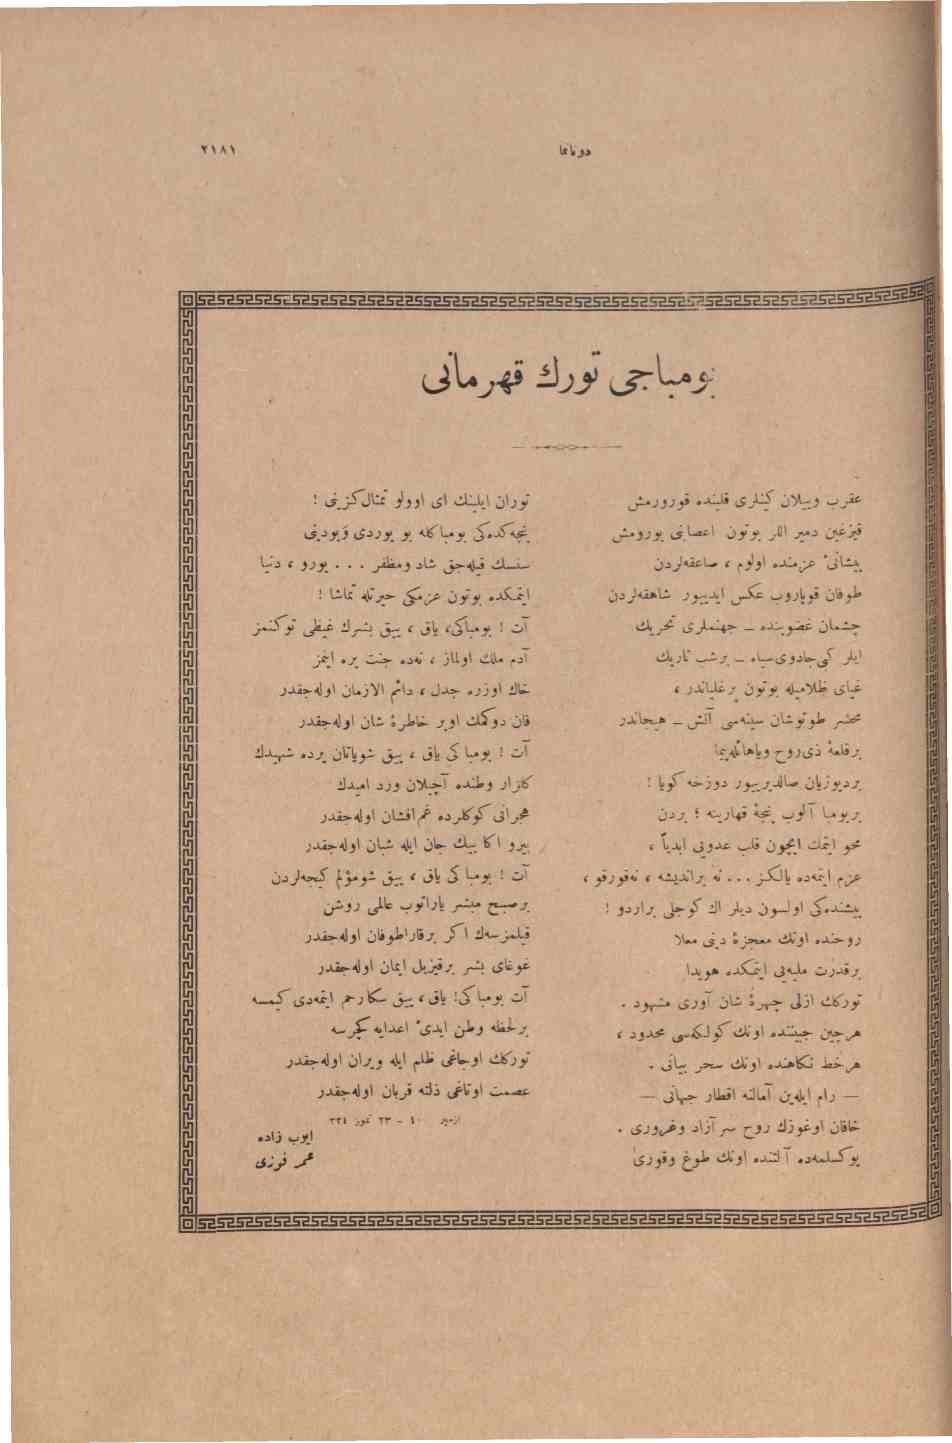 دوناما
٢١٨١
بومباجی تورك قهرمانی
عقرب وییلان كینلری قلبنده قورورمش
قیزغین دمیر اللر بوتون اعصابنی یورومش
پیشانیٔ عزمنده اولوم ، صاعقه‌لردن
طوفان قوپاروب عكس ایدییور شاهقه‌لردن
چشمان غضوبنده ـ جهنملری تحریك
ایلر كبی جادوی سیاه ـ برشب تاریك
غیای ظلامیله بوتون برغلیاندر ،
محشر طوتوشان سینه‌سی آتش ـ هیجاندر
برقلعهٔ ذی‌روح وباهائله‌پیما
بردیوزیان صالدیرییور دوزخه كویا !
بربومبا آلوب پنجهٔ قهارینه ؛ بردن
محو ایتمك ایچون قلب عدویی ابدیاً ،
عزم ایتمه‌ده یالكز . . . نه براندیشه ، نه‌قورقو ،
پیشنده‌كی اولسون دیلر اك كوجلی براردو !
روحنده اونك معجزهٔ دینی معلا
برقدرت ملیه‌یی ایتمكده هویدا
توركك ازلی چهرهٔ شان آوری مشهود .
هرچین جبیننده اونك كولكه‌سی محدود ،
هرخط نكاهنده اونك سحر بیانی .
— رام ایله‌ین آمالنه اقطار جهانی —
خاقان اوغوزك روح سر آزاد وغروری .
یوكسلمه‌ده آلتنده اونك طوغ وقوری
توران ایلینك ای اوولو تمثال كزینی !
پنجه‌كده‌كی بومباكله بو یوردی وبودینی
سنسك قیله‌جق شاد ومظفر . . . یورو ، دنیا
ایتمكده بوتون عزمكی حیرتله تماشا !
آت ! بومباكی، یاق ، ییق بشرك غیظی توكنمز
آدم ملك اولماز ، نه‌ده جنت یره اینمز
خاك اوزره جدل ، دائم الازمان اوله‌جقدر
قان دوكمك اوبر خاطرهٔ شان اوله‌جقدر
آت ! بومباكی یاق ، ییق شویاتان یرده شهیدك
كلزار وطنده آچیلان ورد امیدك
هجرانی كوكلرده غم‌افشان اوله‌جقدر
پیرو اكا بیك جان ایله شبان اوله‌جقدر
آت ! بومباكی یاق ، ییق شومؤلم كیجه‌لردن
برصبح مبشر یاراتوب عالمی روشن
قیلمزسه‌ك اكر برقاراطوفان اوله‌جقدر
غوغای بشر برقیزیل ایمان اوله‌جقدر
آت بومباكی! یاق ، ییق سكارحم ایتمه‌دی كیمسه
برلحظه وطن ایدیٔ اعدایه كچرسه
توركك اوجاغی ظلم ایله ویران اوله‌جقدر
عصمت اوتاغی ذلته قربان اوله‌جقدر
ازمیر ٤٠ - ٢٣ تموز ٣٣٤
ایوب زاده
عمر فوزی